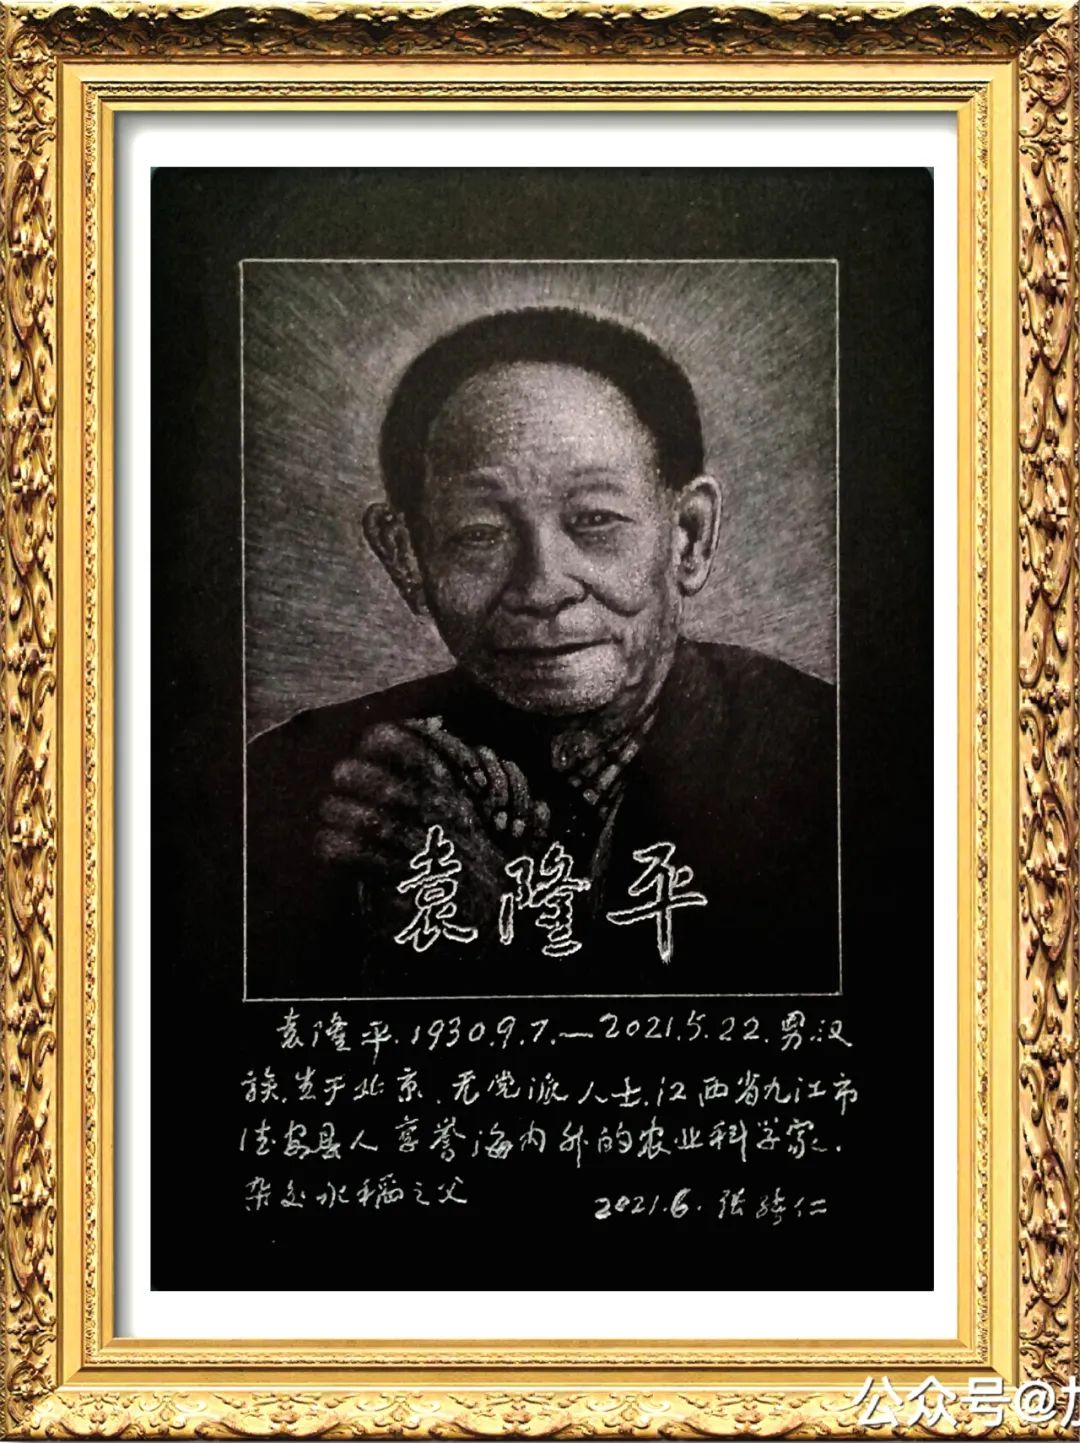 袁隆平
袁隆平.1930.9.7.—2021.5.22.男.汉
族.生于北京、无党派人士.江西省九江市
德安县人享誉海内外的农业科学家.
杂交水稻之父
2021.6.张
仁
公众号@